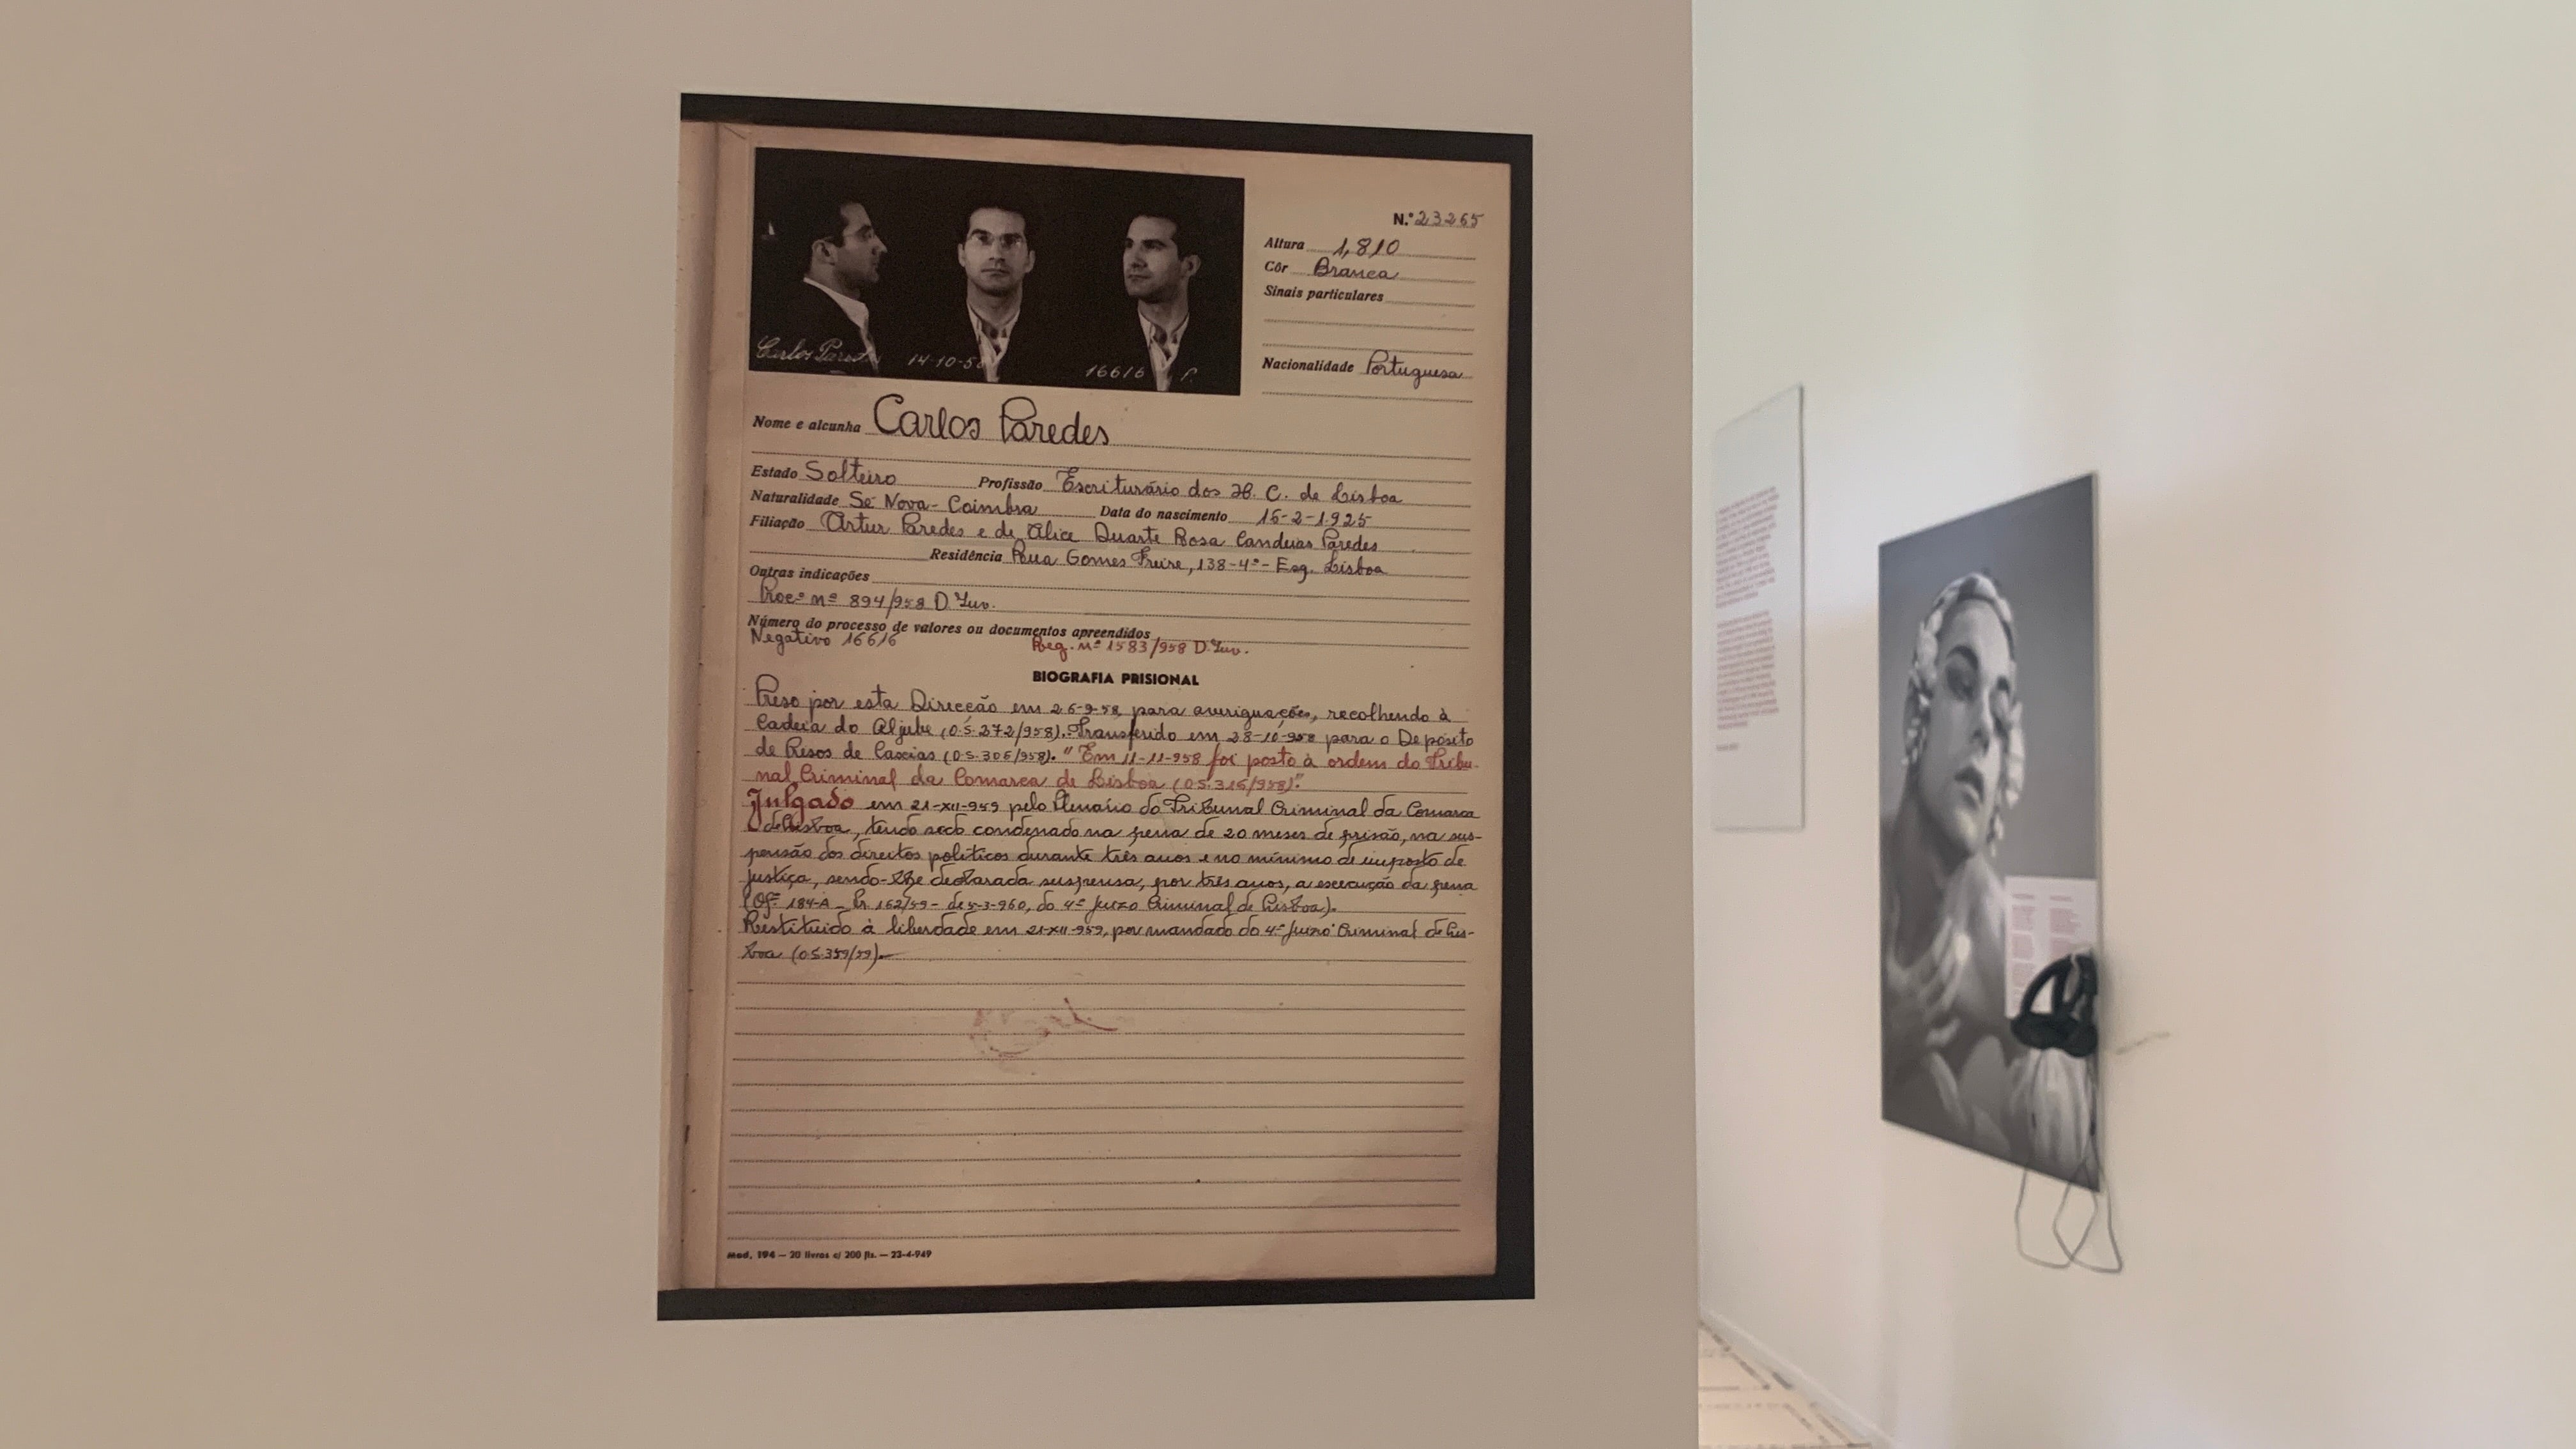 N.º 23265
Altura 1,810
Côr Branca
Sinais particulares
Nacionalidade Portuguesa
Carlos Pared
14-10-5
16616
Nome e alcunha Carlos Paredes
Estado Solteiro Profissão Escriturário dos H. C. de Lisboa
Naturalidade Sé Nova - Coimbra Data do nascimento 16-2-1.925
Filiação Artur Paredes e de Alice Duarte Rosa Candeias Paredes
Residência Rua Gomes Freire, 138-4º - Esq. Lisboa
Outras indicações
Proc.º nº 894/958 D. Inv.
Número do processo de valores ou documentos apreendidos
Negativo 16616 Reg. nº 1583/958 D. Inv.
BIOGRAFIA PRISIONAL
Preso por esta Direcção em 26-9-58, para averiguações, recolhendo à
Cadeia do Aljube (O.S. 272/958). Transferido em 28-10-958 para o Depósito
de Presos de Caxias (O.S. 306/958). "Em 11-11-958 foi posto à ordem do Tribu-
nal Criminal da Comarca de Lisboa (O.S. 316/958)."
Julgado em 21-XII-959 pelo Plenário do Tribunal Criminal da Comarca
de Lisboa, tendo sido condenado na pena de 20 meses de prisão, na sus-
pensão dos direitos políticos durante três anos e no mínimo de imposto de
justiça, sendo-lhe declarada suspensa, por três anos, a execução da pena
(Of.º 184-A - Pr. 162/59 - de 5-3-960, do 4º Juizo Criminal de Lisboa).
Restituido à liberdade em 21-XII-959, por mandado do 4º Juizo Criminal de Lis-
boa (O.S. 359/59).
Mod. 194 — 20 livros c/ 200 fls. — 23-4-949